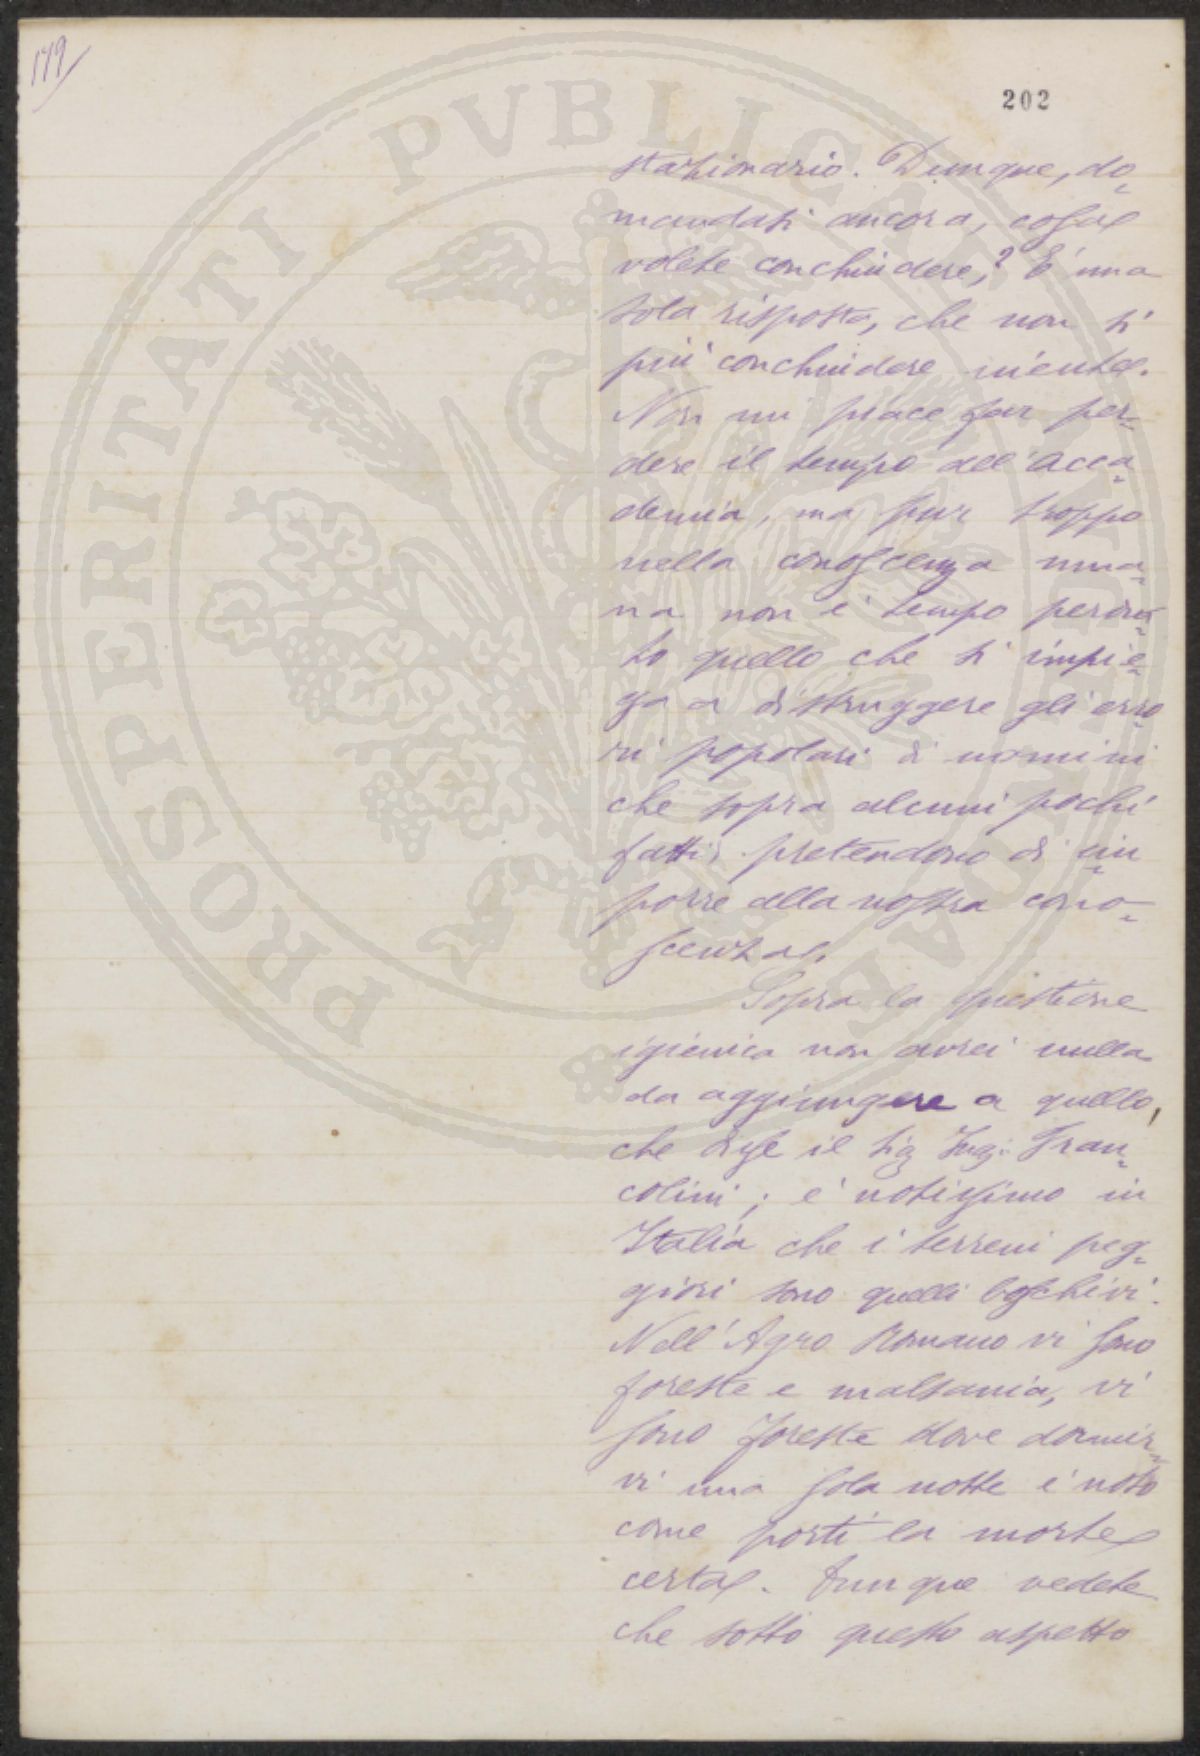 179
202
stazionario. Dunque, do-
mandati ancora, cosa
volete conchiudere,? È una
sola risposta, che non si
può conchiudere niente.
Non mi piace far per-
dere il tempo all'Acca-
demia, ma pur troppo
nella conoscenza uma-
na non è tempo perdu-
to quello che si impie-
ga a distruggere gli erro-
ri popolari di uomini
che sopra alcuni pochi
fatti pretendono di im-
porre alla nostra cono-
scenza.
Sopra la questione
igienica non avrei nulla
da aggiungere a quello,
che disse il Sig Ing: Fran-
colini; è notissimo in
Italia che i terreni peg-
giori sono quelli boschivi.
Nell'Agro Romano vi sono
foreste e malsania, vi
sono foreste dove dormir-
vi una sola notte è noto
come porti la morte
certa. Dunque vedete
che sotto questo aspetto
PROSPERITATI PVBLICAE AVGENDAE